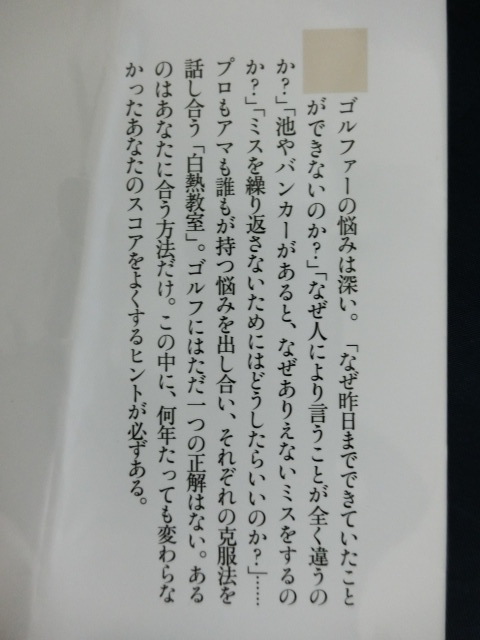 ゴルファーの悩みは深い。「なぜ昨日までできていたこと
ができないのか?」「なぜ人により言うことが全く違うの
か?」「池やバンカーがあると、なぜありえないミスをするの
か?」「ミスを繰り返さないためにはどうしたらいいのか?」……
プロもアマも誰もが持つ悩みを出し合い、それぞれの克服法を
話し合う「白熱教室」。ゴルフにはただ一つの正解はない。ある
のはあなたに合う方法だけ。この中に、何年たっても変わらな
かったあなたのスコアをよくするヒントが必ずある。